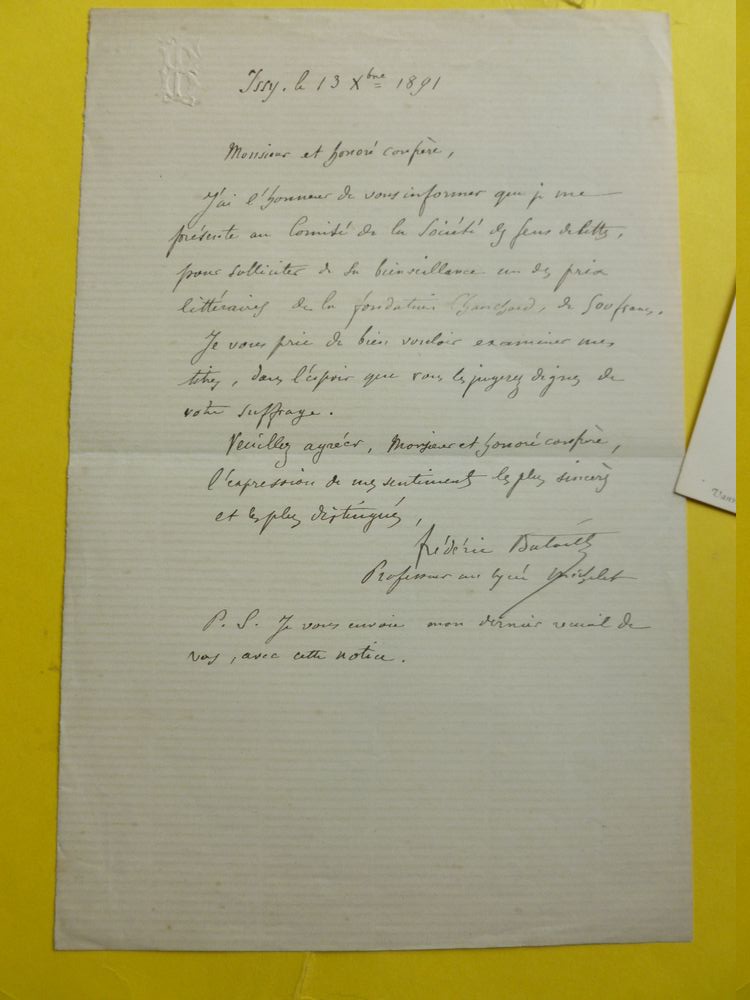 Issy, le 13 Xbre 1891
Monsieur et honoré confrère,
J'ai l'honneur de vous informer que je me
présente au Comité de la Société des Gens de lettres,
pour solliciter de sa bienveillance un des prix
littéraires de la fondation Chauchard, de 500 francs.
Je vous prie de bien vouloir examiner mes
titres, dans l'espoir que vous les jugerez dignes de
votre suffrage.
Veuillez agréer, Monsieur et honoré confrère,
l'expression de mes sentiments les plus sincères
et les plus distingués,
Frédéric Bataille
Professeur au lycée Michelet
P. S. Je vous envoie mon dernier recueil de
vers, avec cette notice.